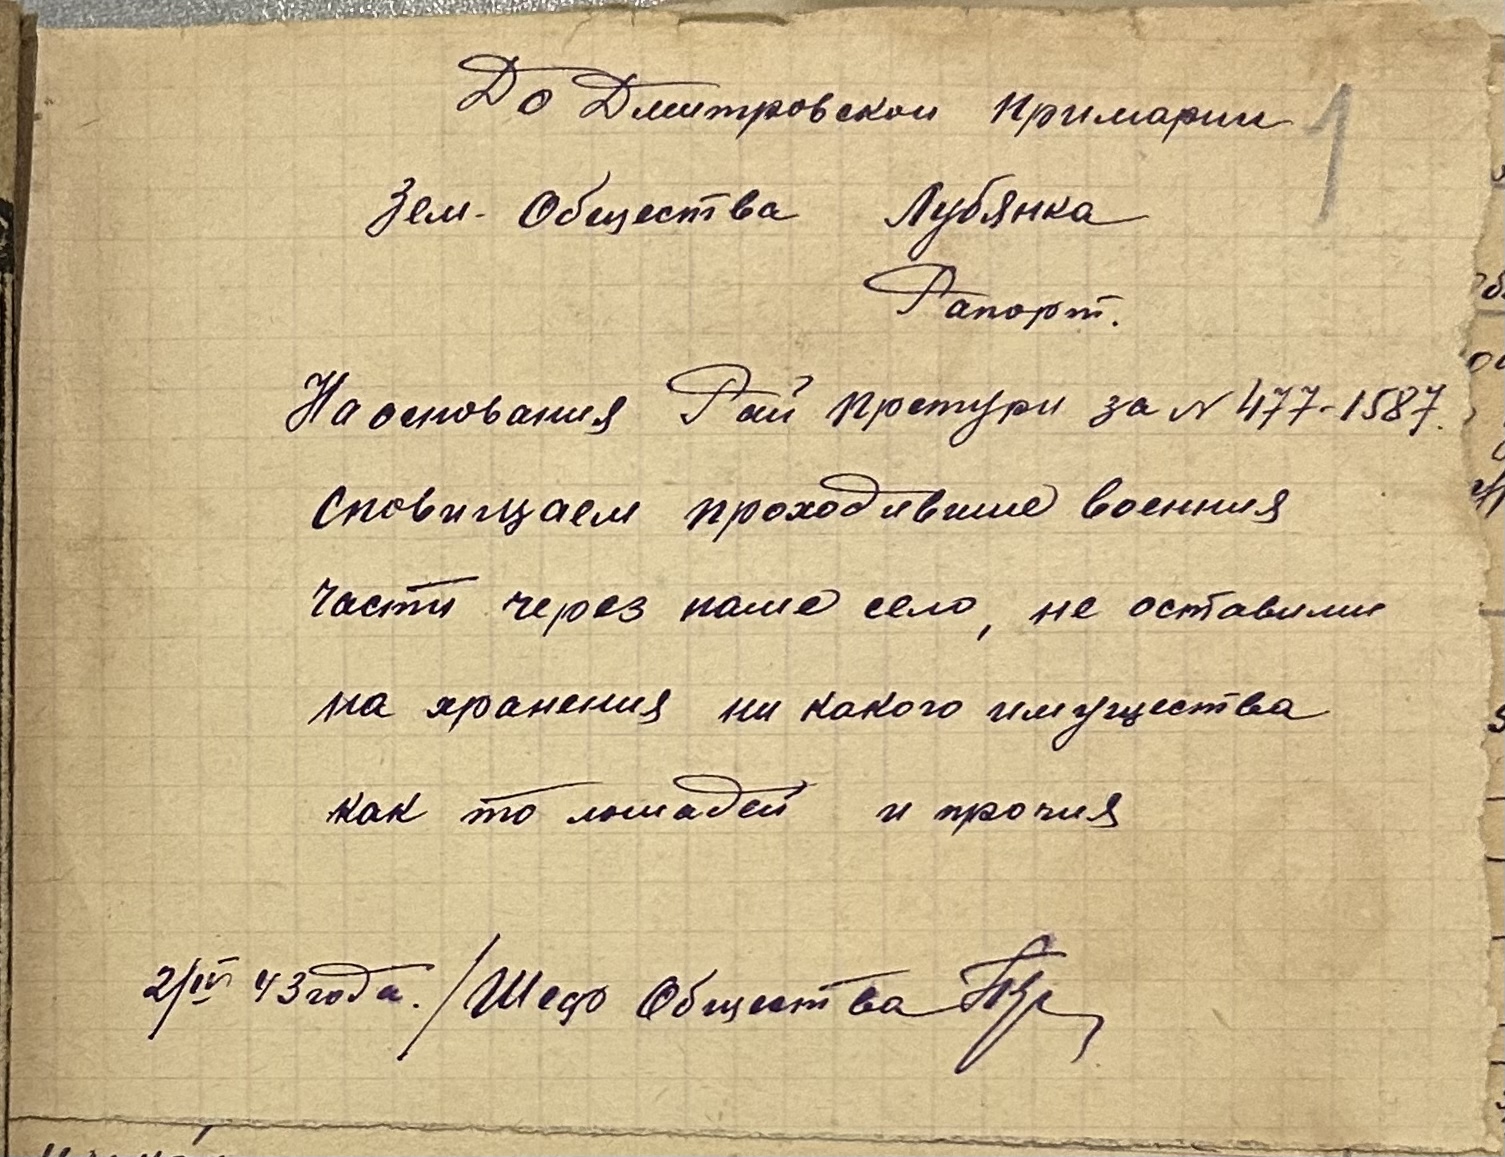 До Дмитровской примарии
1
Зем- Общества Лубянка
Рапорт.
На основания Рай претури за N 477-1587.
Сповищаем проходившие военния
части через наше село, не оставили
на хранения ни какого имущества
как то лошадей и прочия
2/IV 43 года. / Шеф Общества